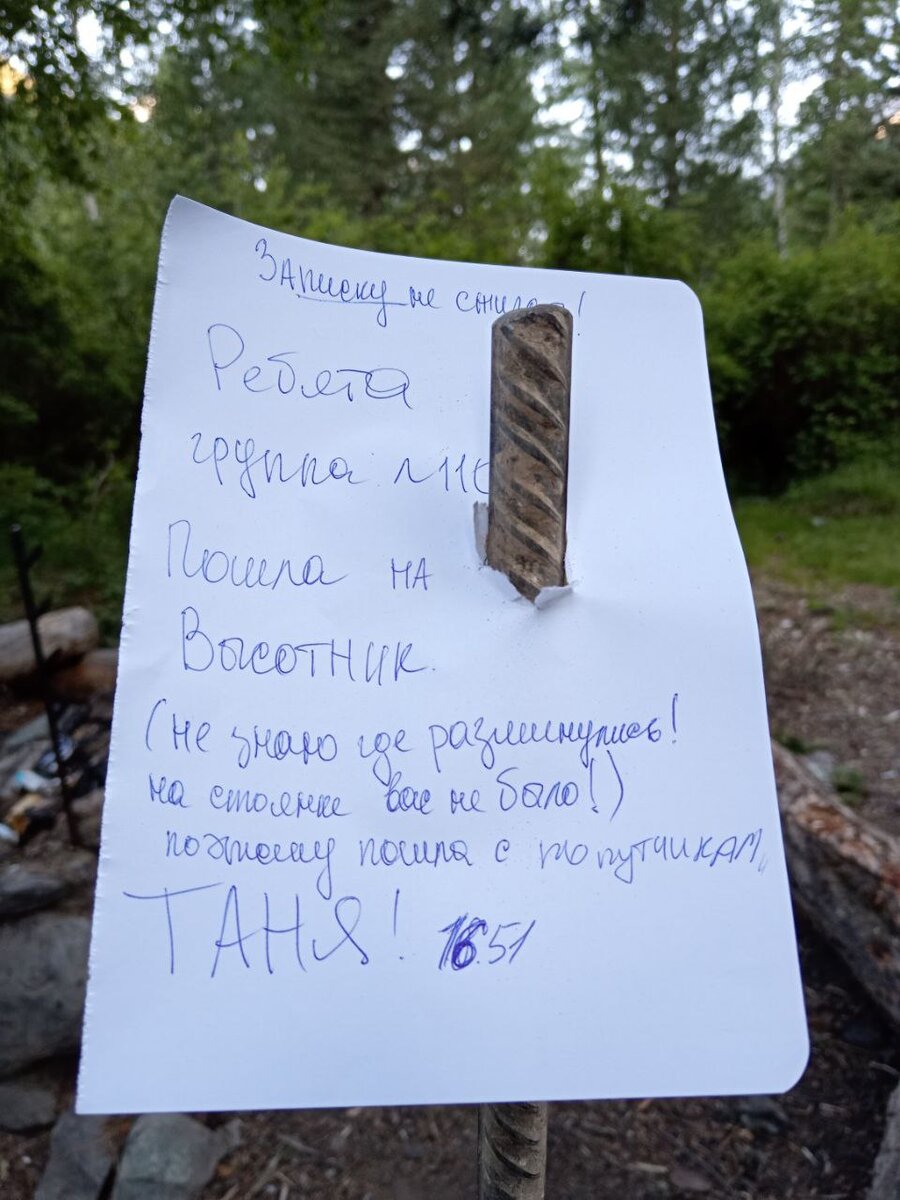 Записку не
Ребята
группа
Пошла на
Высотник.
(не знаю где разминулись!
на стоянке вас не было!)
поэтому пошла с попутчикам
ТАНЯ! 16.51